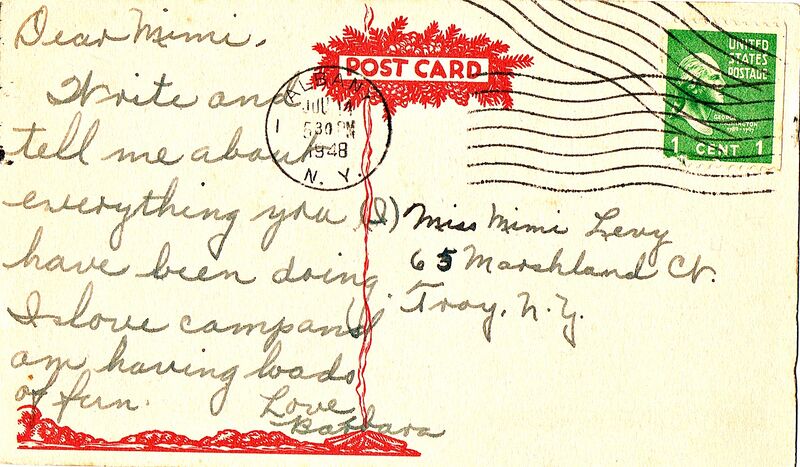 Dear Mimi,
Write and
tell me about
everything you (I)
have been doing
I love camp and I
am having loads
of fun.
Love
Barbara
POST CARD
ALBANY
JUL 14
5 30 PM
1948
N. Y.
1
UNITED
STATES
POSTAGE
GEORGE
WASHINGTON
1 CENT 1
Miss Mimi Levy
65 Marshland Ct.
Troy, N.Y.